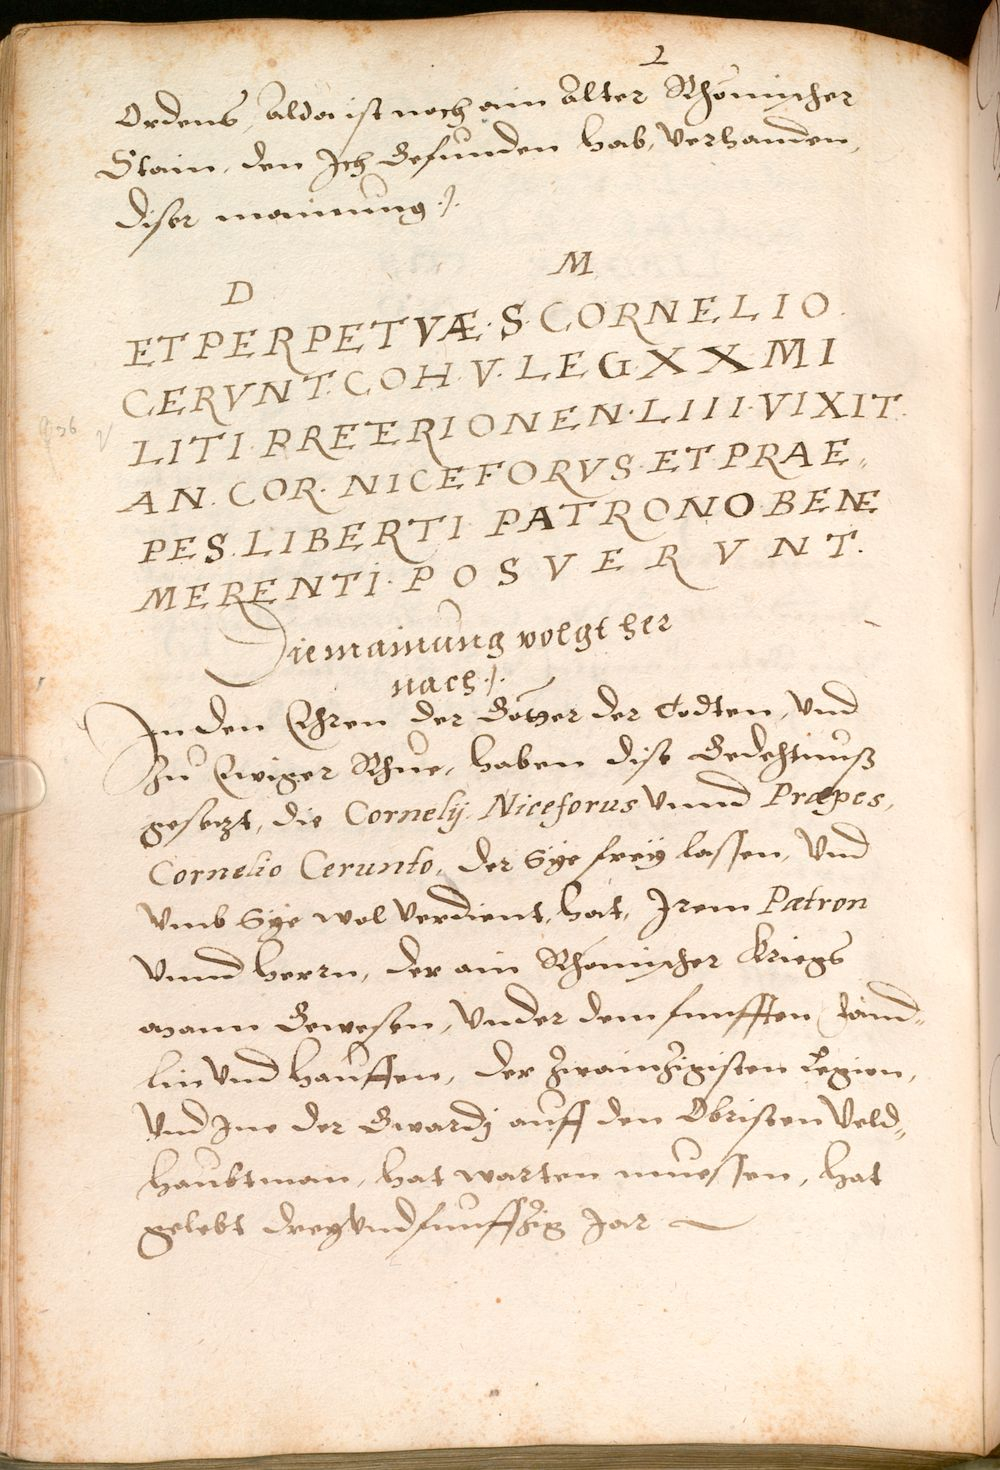 2
Ordens, alda ist noch ain alter Rhömischer
Stain, den Ich Gefunden hab, verhanden,
diser mainung ./.
D M
ET PERPETVÆ · S · CORNELIO ·
CERVNT · COH · V · LEG · XX · MI
LITI · PREERIONEN · LIII · VIXIT ·
AN · COR · NICEFORVS · ET PRAE„
PES · LIBERTI PATRONO BENE
MERENTI · POSVERVNT ·
Die mainung volgt her
nach ./.
In den Ehren der Götter der Todten, Vnd
Zu Ewiger Rhue, haben dise Gedechtnuß
gesetzt, die Cornelij Niceforus Vnnd Præpes,
Cornelio Cerunto, der Sÿe freÿ lassen, Vnd
Vmb Sÿe wol verdient, hat, Irem Patron
Vnnd herrn, der ain Rhömischer Kriegs
mann Gewesen, Vnder dem funfften fand„
lin Vnd hauffen, der Zwaintzigisten Legion,
Vnd Ine der Gwardj auff den Obristen Veld„
haubtman, hat warten muessen, hat
gelebt dreÿ Vnd funfftzig Jar